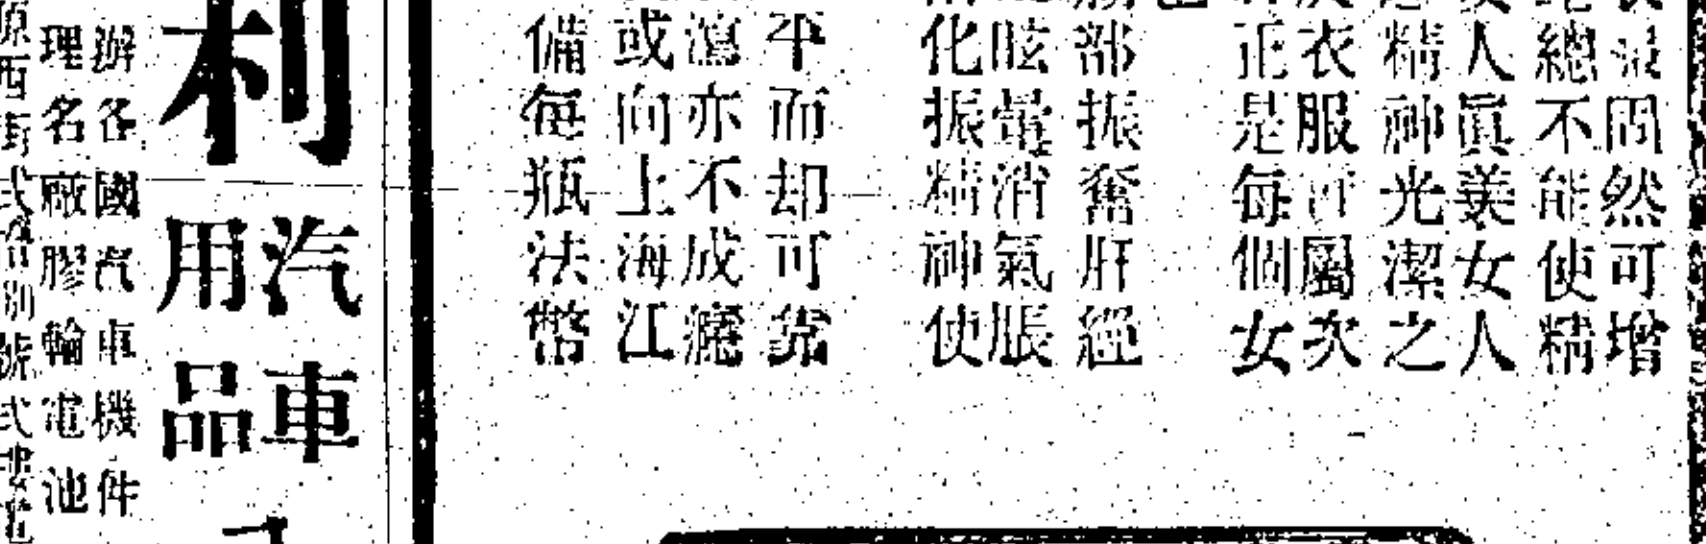 問然可增
總不能使精
人眞美女人
精神光潔之
衣服 屬次
正是每個女
部振奮肝經
眩暈消氣脹
化振精神使
平而却可靠
瀉亦不成癮
或向上海江
備每瓶法幣
利
汽車
用品
辦各國汽車機件
理名廠膠輪電池
原西街式 號式樓